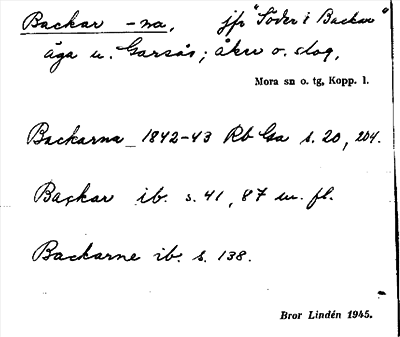 Backar -na, jfr "Söder i Backar"
äga u. Garsås; åker o. slog.
Mora sn o. tg, Kopp. l.
Backarna 1842-43 Rb Ga s. 20, 204.
Backar ib. s. 41, 87 m. fl.
Backarne ib. s. 138.
Bror Lindén 1945.